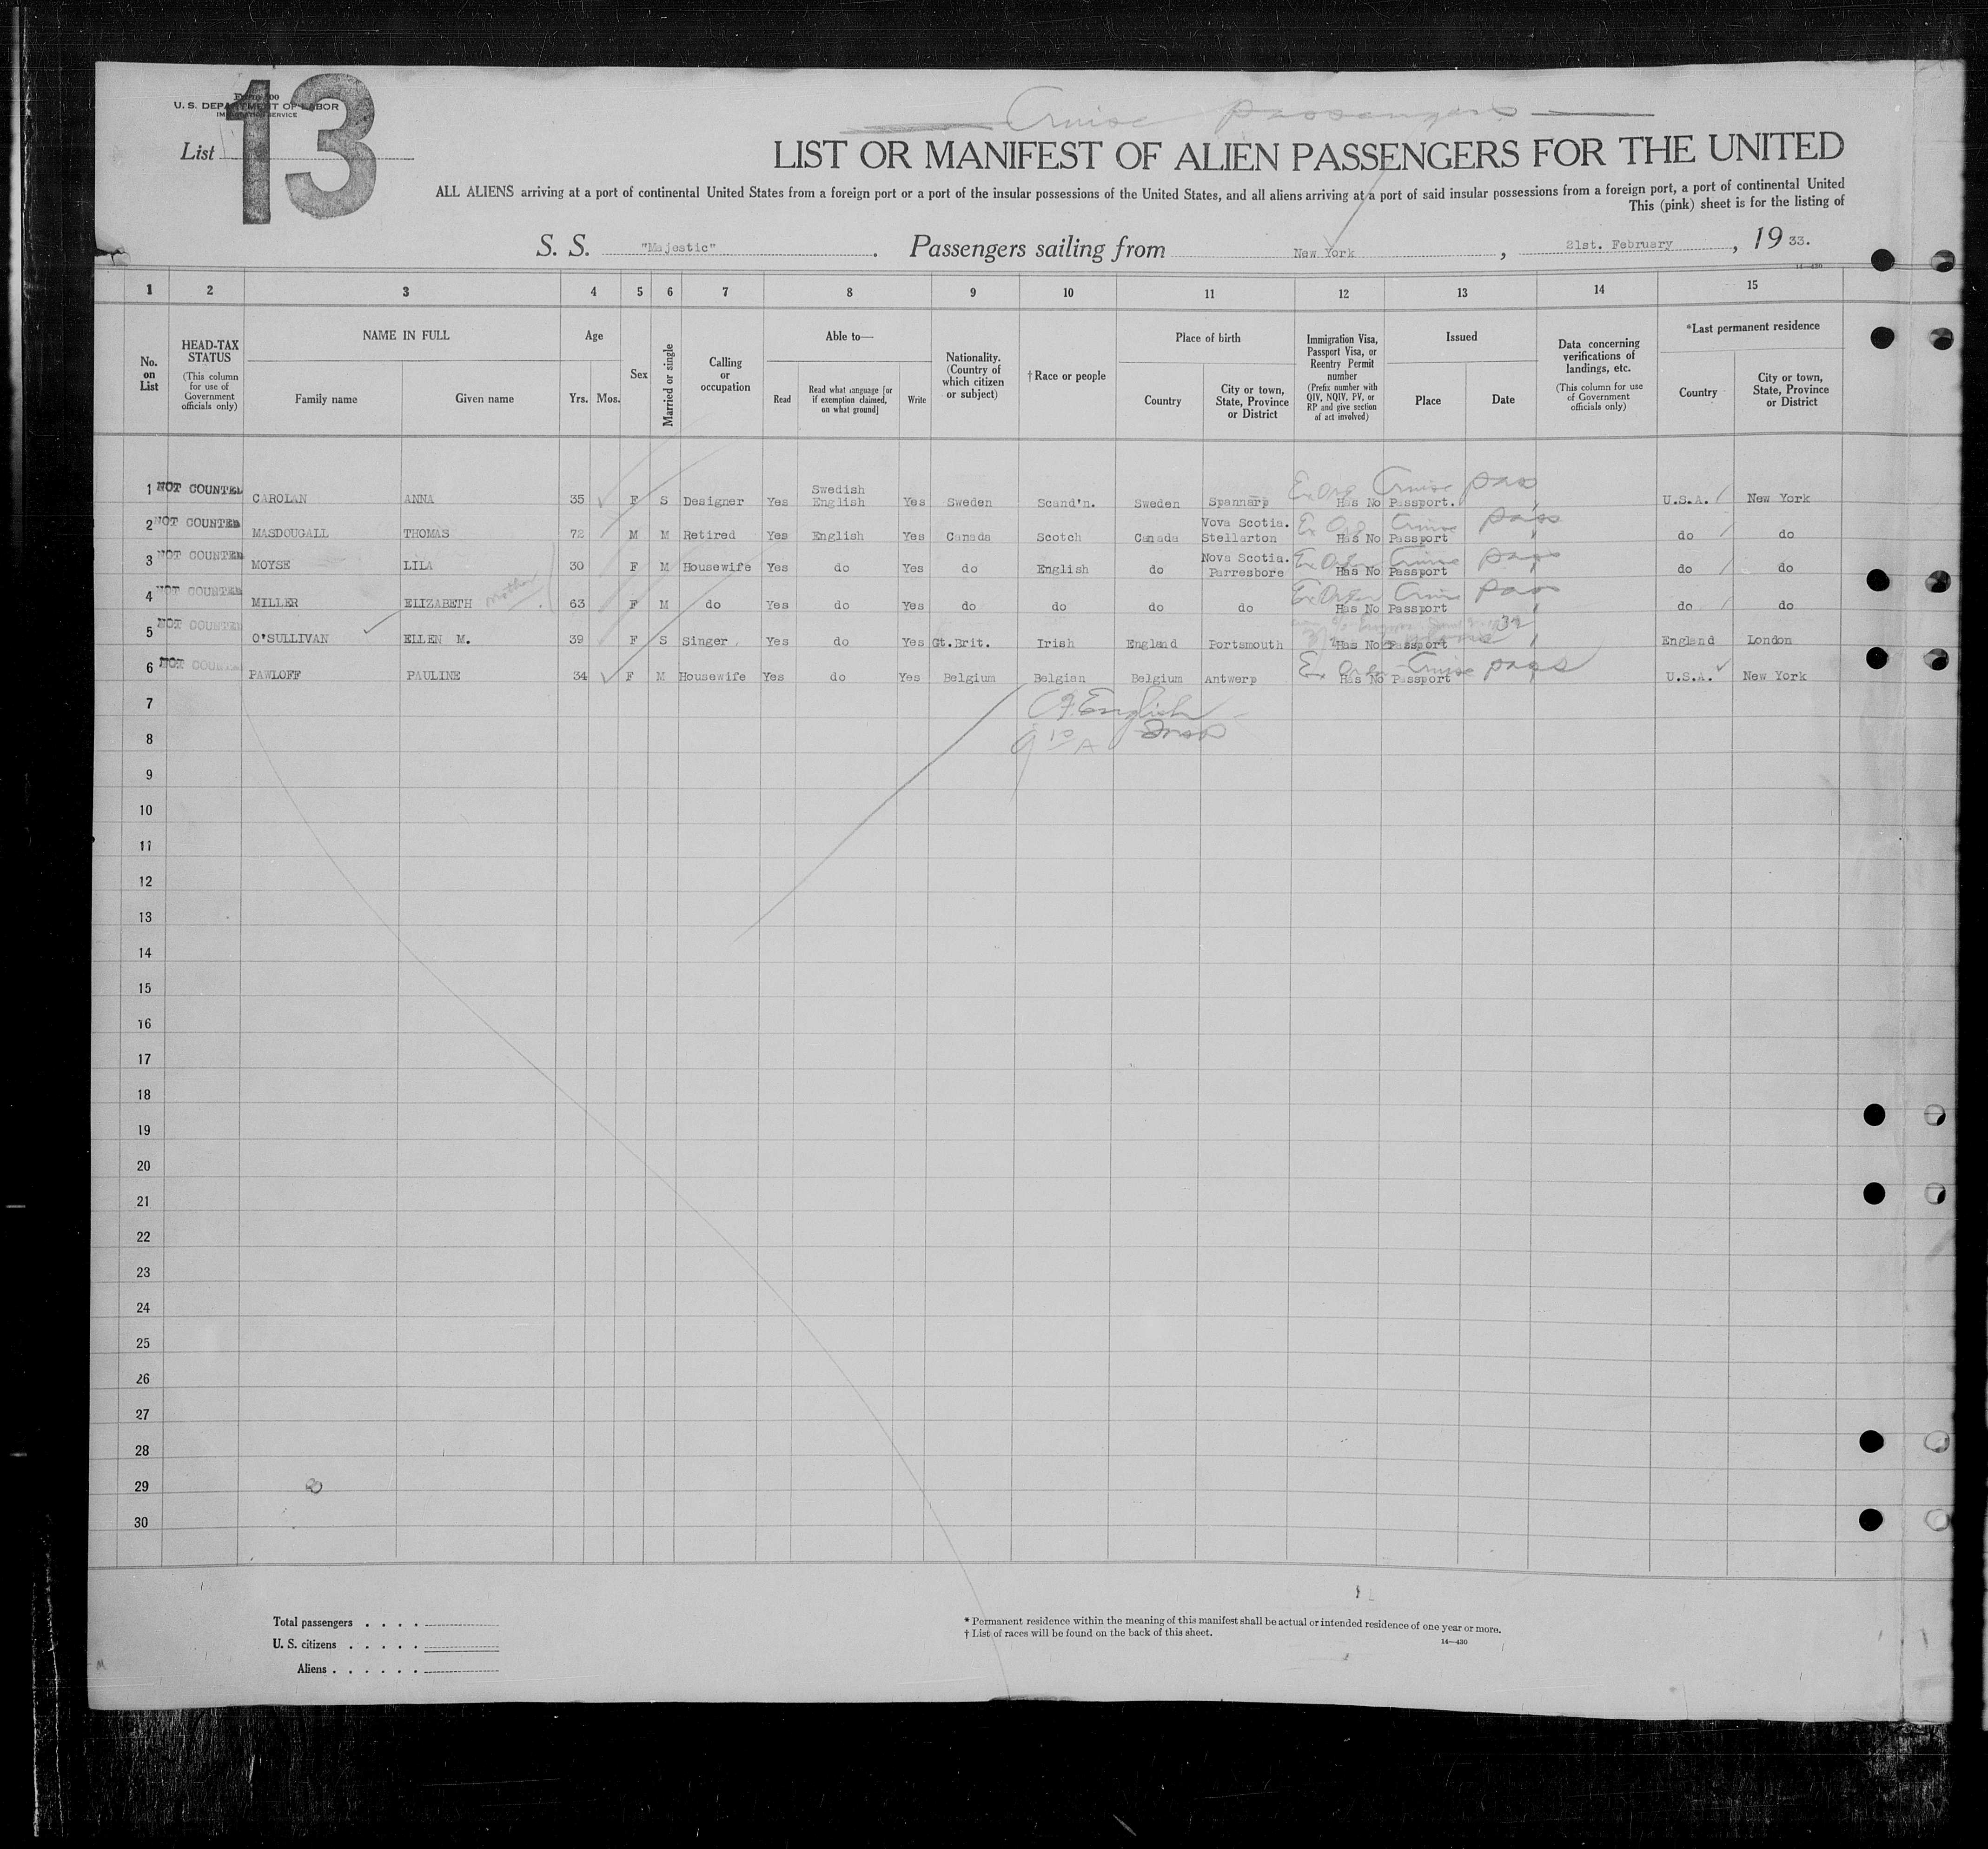 Cruise passengers
13
U. S. DEPARTMENT OF LABOR
IMMIGRATION SERVICE
List
LIST OR MANIFEST OF ALIEN PASSENGERS FOR THE UNITED
ALL ALIENS arriving at a port of continental United States from a foreign port or a port of the insular possessions of the United States, and all aliens arriving at a port of said insular possessions from a foreign port, a port of continental United
This (pink) sheet is for the listing of
S. S. "Majestic". Passengers sailing from New York, 21st. February, 19 33.
14—430
1 2 3 4 5 6 7 8 9 10 11 12 13 14 15
No. on List
HEAD-TAX STATUS (This column for use of Government officials only)
NAME IN FULL
Family name Given name
Age
Yrs. Mos.
Sex
Married or single
Calling or occupation
Able to—
Read
Read what language [or if exemption claimed, on what ground]
Write
Nationality. (Country of which citizen or subject)
†Race or people
Place of birth
Country
City or town, State, Province or District
Immigration Visa, Passport Visa, or Reentry Permit number (Prefix number with QIV, NQIV, PV, or RP and give section of act involved)
Issued
Place Date
Data concerning verifications of landings, etc. (This column for use of Government officials only)
*Last permanent residence
Country
City or town, State, Province or District
1 NOT COUNTED CAROLAN ANNA 35 F S Designer Yes Swedish English Yes Sweden Scand'n. Sweden Spannarp Has No Passport. Cruise pass U.S.A. New York
2 NOT COUNTED MASDOUGALL THOMAS 72 M M Retired Yes English Yes Canada Scotch Canada Vova Scotia. Stellarton Has No Passport Cruise pass do do
3 NOT COUNTED MOYSE LILA 30 F M Housewife Yes do Yes do English do Nova Scotia. Parresboro Has No Passport Cruise pass do do
4 NOT COUNTED MILLER ELIZABETH mother 63 F M do Yes do Yes do do do do Has No Passport Cruise pass do do
5 NOT COUNTED O'SULLIVAN ELLEN M. 39 F S Singer. Yes do Yes Gt.Brit. Irish England Portsmouth Has No Passport England London
6 NOT COUNTED PAWLOFF PAULINE 34 F M Housewife Yes do Yes Belgium Belgian Belgium Antwerp Has No Passport Cruise pass U.S.A. New York
7 English
8
9
10
11
12
13
14
15
16
17
18
19
20
21
22
23
24
25
26
27
28
29
30
Total passengers . . . .
U. S. citizens . . . . .
Aliens . . . . . .
* Permanent residence within the meaning of this manifest shall be actual or intended residence of one year or more.
† List of races will be found on the back of this sheet.
14—430